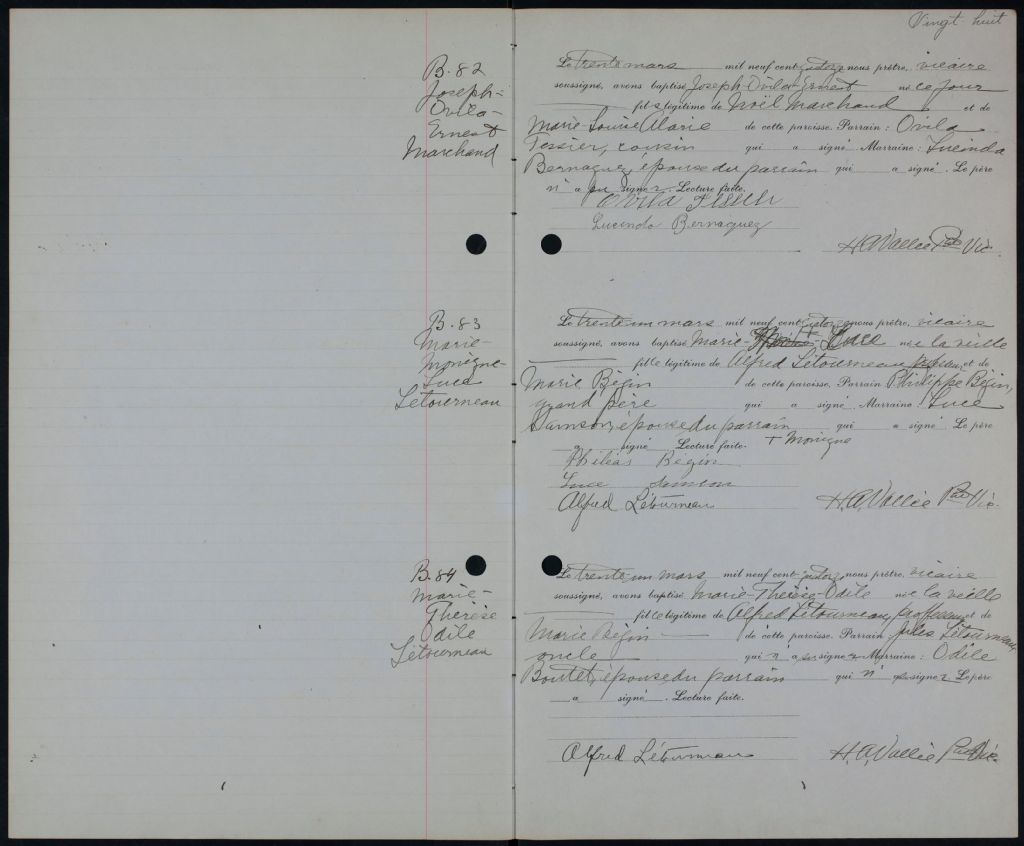 Vingt-huit
B.82
Joseph-
Ovila-
Ernest
Marchand
Le trente mars mil neuf cent quatorze nous prêtre, vicaire
soussigné, avons baptisé Joseph-Ovila-Ernest né ce jour
fils légitime de Noël Marchand et de
Marie-Louise Alarie de cette paroisse. Parrain : Ovila
Tessier, cousin qui a signé. Marraine : Lucinda
Bernaquez, épouse du parrain qui a signé. Le père
n'a pu signer. Lecture faite.
Ovila Tessier
Lucinda Bernaquez
H.A. Vallée Ptre Vic.
B.83
Marie-
Monique-
Luce
Létourneau
Le trente un mars mil neuf cent quatorze nous prêtre, vicaire
soussigné, avons baptisé Marie- + Luce née la veille
fille légitime de Alfred Létourneau et de
Marie Bégin de cette paroisse. Parrain Philippe Bégin,
grand père qui a signé. Marraine : Luce
Samson, épouse du parrain qui a signé. Le père
a signé Lecture faite. + Monique
Philéas Begin
Luce Samson
Alfred Létourneau H.A. Vallée Ptre Vic.
B.84
Marie-
Thérèse
Odile
Létourneau
Le trente un mars mil neuf cent quatorze nous prêtre, vicaire
soussigné, avons baptisé Marie-Thérèse-Odile née la veille
fille légitime de Alfred Létourneau, et de
Marie Bégin de cette paroisse. Parrain Jules Létourneau,
oncle qui n'a pu signer Marraine : Odile
Boutet, épouse du parrain qui n' a pu signer Le père
a signé. Lecture faite.
Alfred Létourneau H.A. Vallée Ptre Vic.